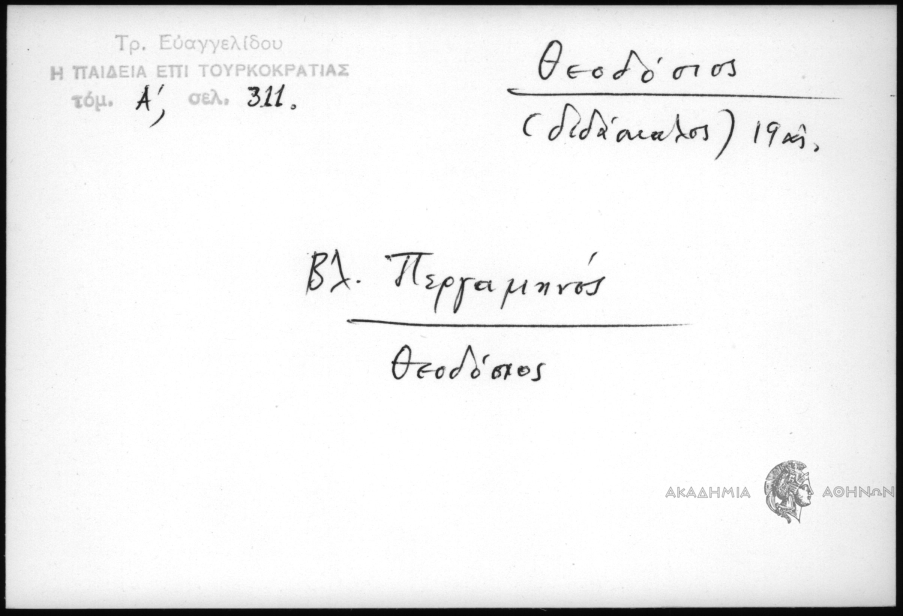 Τρ. Εὐαγγελίδου
Η ΠΑΙΔΕΙΑ ΕΠΙ ΤΟΥΡΚΟΚΡΑΤΙΑΣ
τόμ. Α΄, σελ. 311.
Θεοδόσιος
(διδάσκαλος) 19 αἰ.
Βλ. Περγαμηνός
Θεοδόσιος
ΑΚΑΔΗΜΙΑ ΑΘΗΝΩΝ